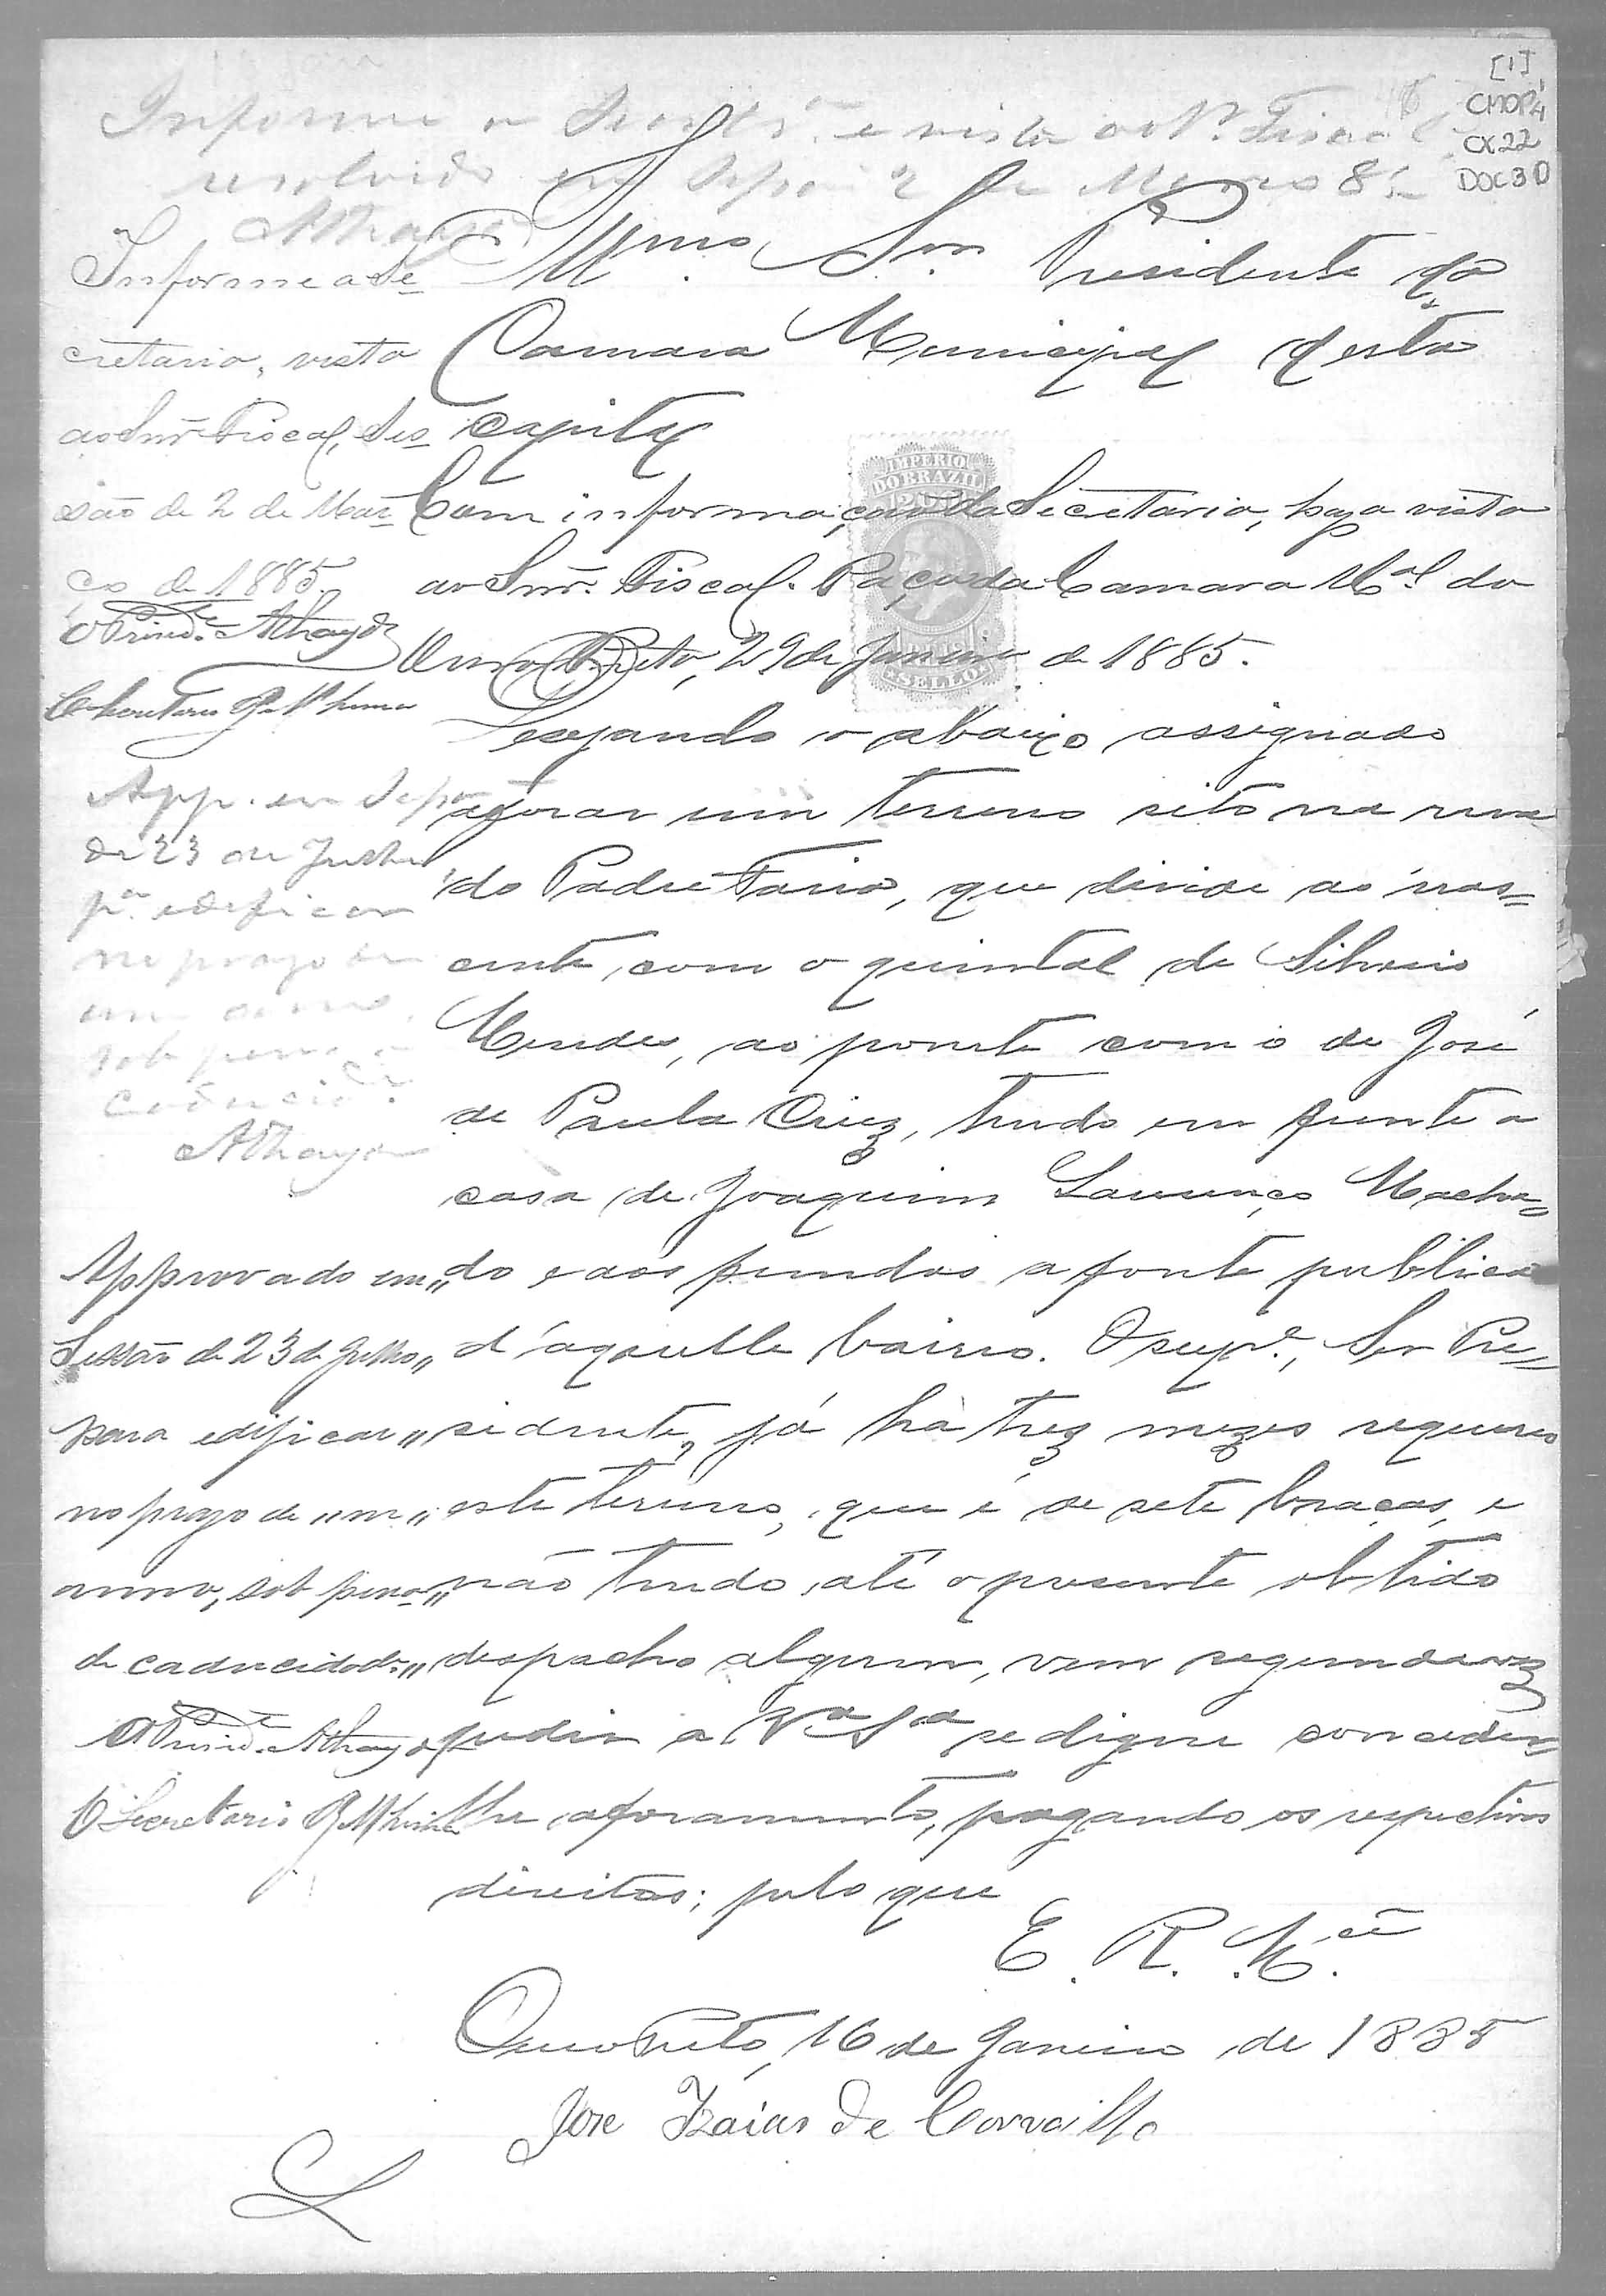 [1]
CMOP
CX22
DOC30
Informe a Secretrª e vista ao Sr. Fiscal
resolvido em Sessão 2 de Março 85
Athayde
Illmo. Snr. Presidente da
Camara Municipal desta
capital
Informe a Se-
cretaria, vista
ao Snr. Fiscal, Ses-
são de 2 de Mar-
ço de 1885.
O Presid.te Athayde
IMPERIO
DO BRAZIL
SELLO
Com informação da Secretaria, haja vista
ao Snr. Fiscal. Paço da Camara M.al do
Ouro Preto, 29 de Janeiro de 1885.
Desejando o abaixo assignado
aforar um terreno sito na rua
do Padre Faria, que divide ao nas-
cente, com o quintal de Silverio
Mendes, ao poente com o de José
de Paula Cruz, tendo em frente a
casa de Joaquim Lourenço Macha-
do e aos fundos a fonte publica
d'aquelle bairro. O supp.e, Snr Pre-
sidente, já há trez mezes requereo
este terreno, que é de sete braças, e
não tendo até o presente obtido
despacho algum, vem segunda vez
pedir a Vª Sª se digne conceder-
lhe aforamento, pagando os respectivos
direitos; pelo que
E. R. M.cê
Ouro Preto, 16 de Janeiro de 1885
Jose Izaias de Carvalho
App. em Sessão
de 23 de Julho
pª edificar
no prazo de
um anno,
sob pena de
caducid.e
Athayde
Approvado em
Sessão de 23 de Julho
para edificar
no prazo de um
anno, sob pena
de caducidade.
O Presid.e Athayde
O Secretario